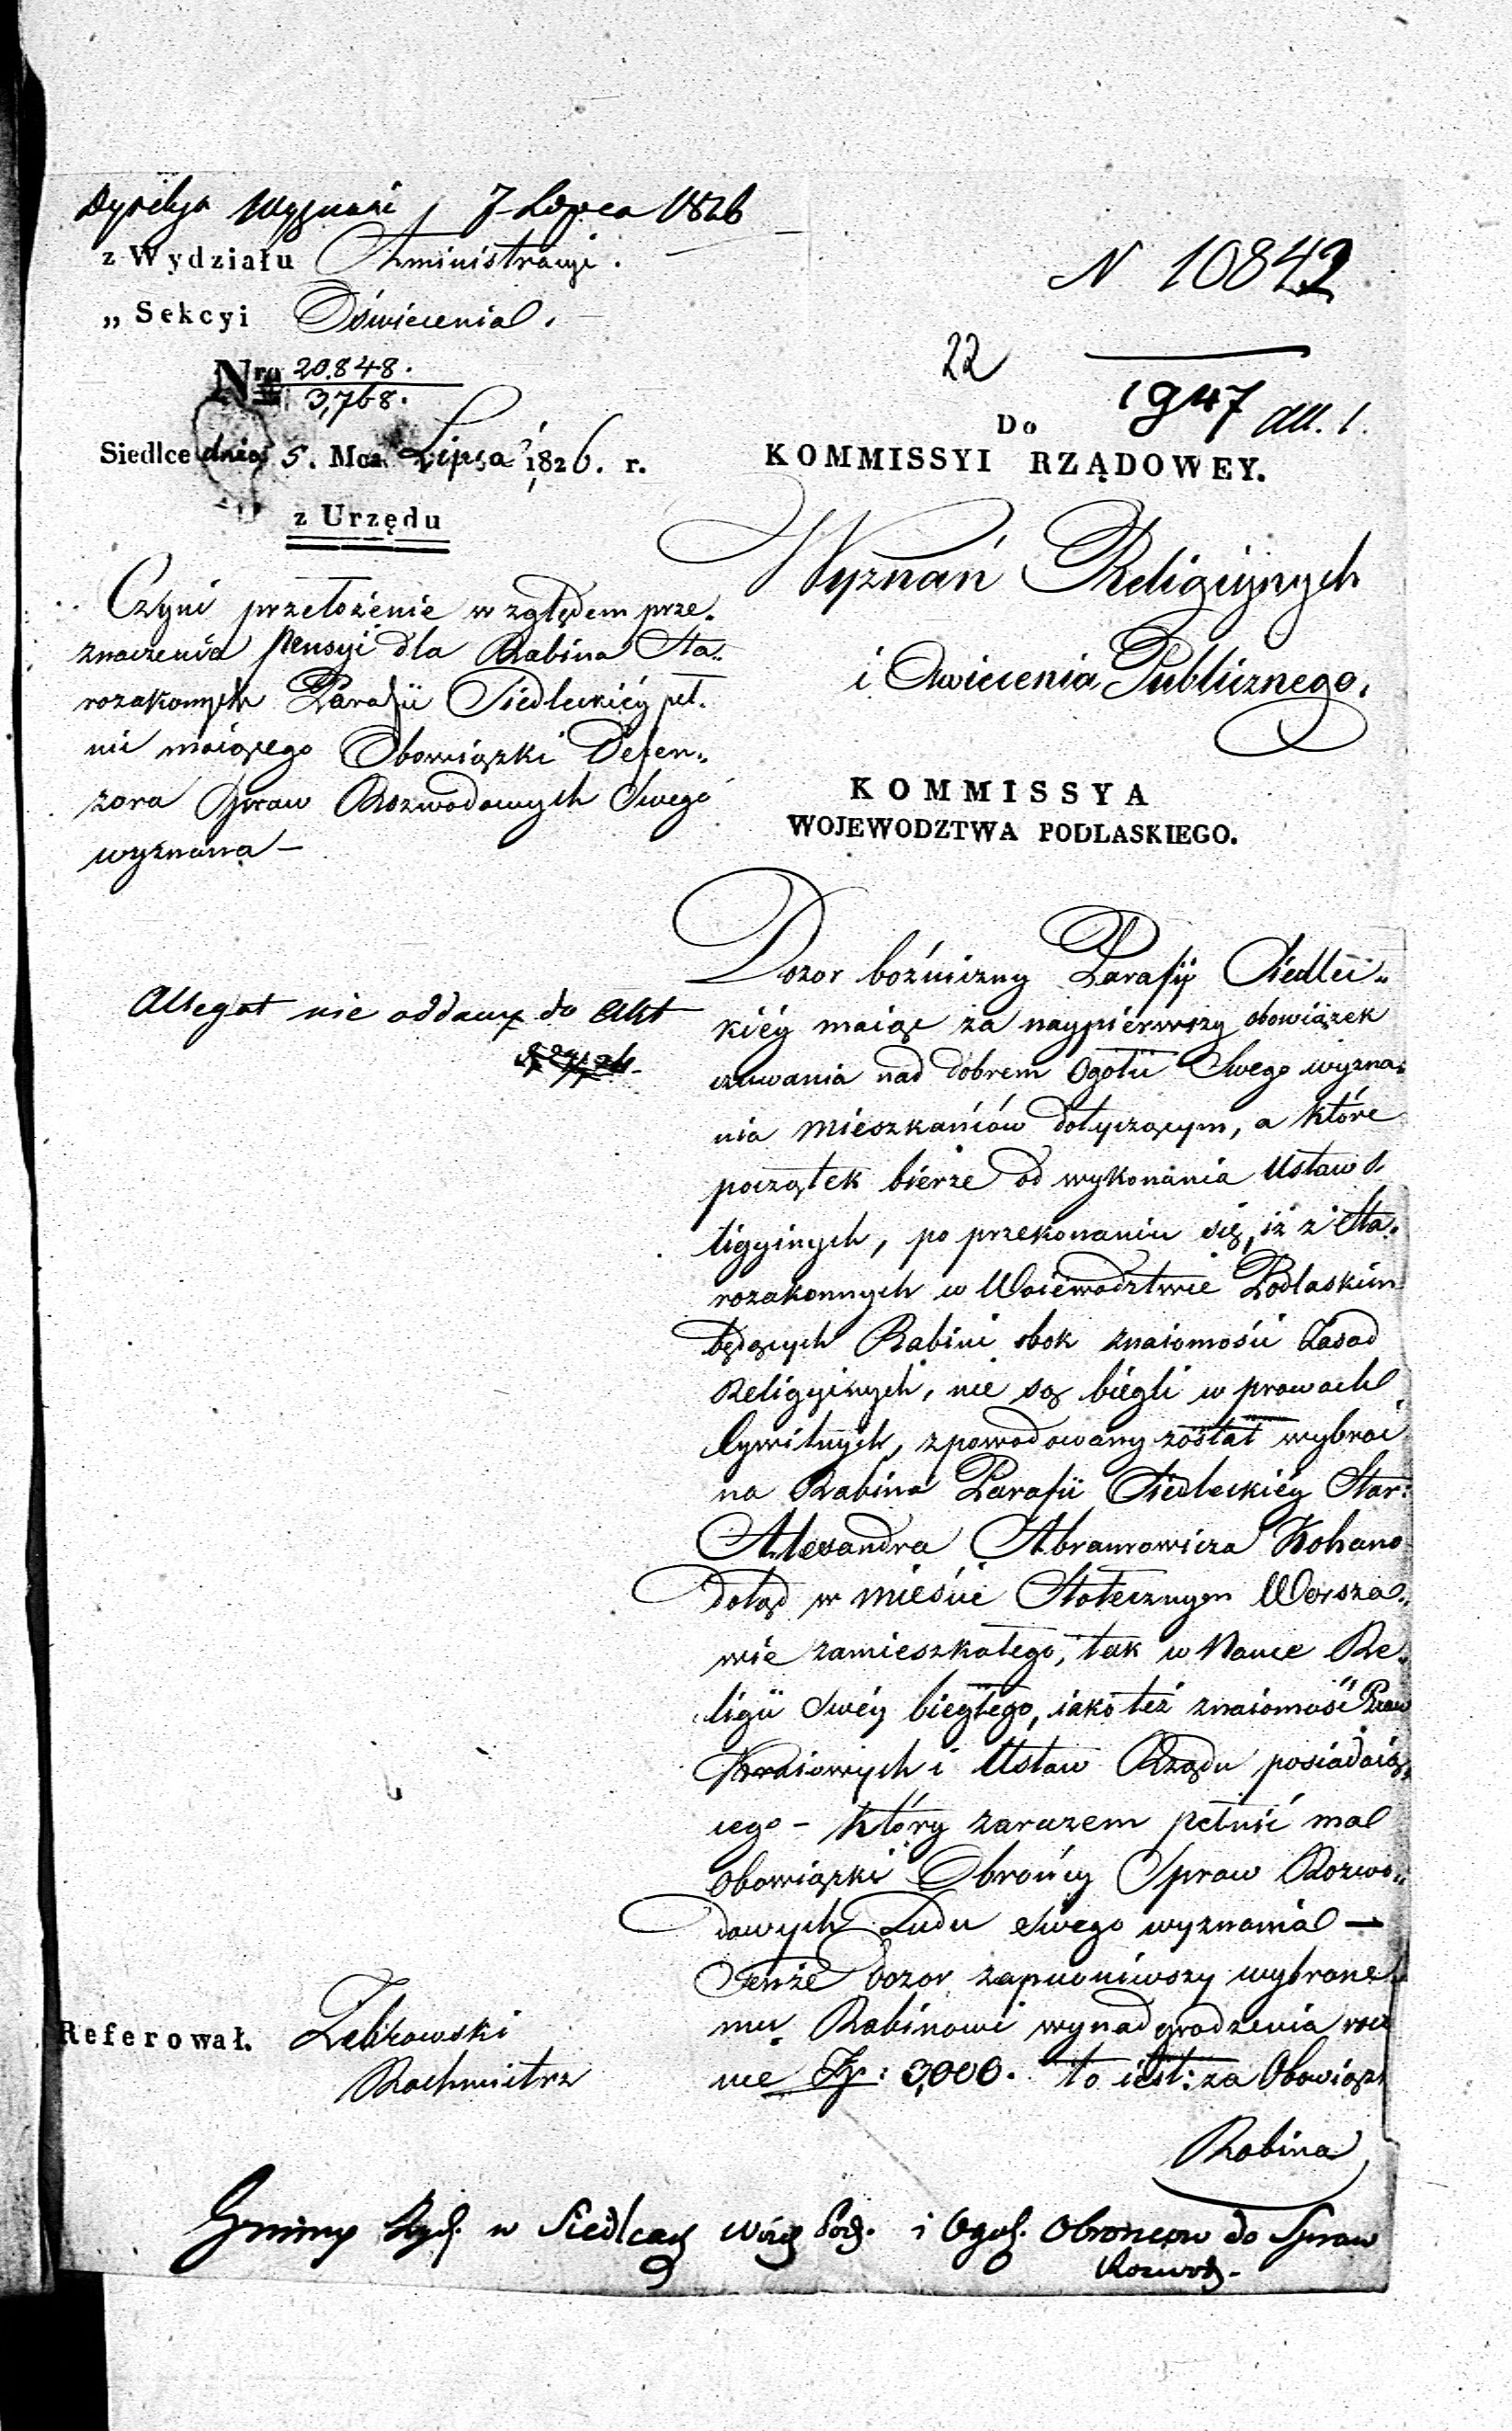 Dyrekcya Wyznań 7 Lipca 1826
z Wydziału Administracyi.
„ Sekcyi Oświecenia.
Nro 20.848.
3,768.
Siedlce dnia 5. Mca Lipca 1826. r.
z Urzędu
Czyni przełożenie względem prze-
znaczenia pensyi dla Rabina Sta-
rozakonnych Parafii Siedleckiéy peł-
nić maiącego Obowiązki Defen-
zora Spraw Rozwodowych Swego
wyznana —
Allegat nie oddany do Akt
N 10842
22
1947 all. 1.
Do
KOMMISSYI RZĄDOWEY.
Wyznań Religiynych
i Oswiecenia Publicznego.
KOMMISSYA
WOJEWODZTWA PODLASKIEGO.
Dozor boźniczny Parafii Siedlec-
kiéy maiąc za naypiérwszy obowiązek
czuwania nad dobrem Ogółu Swego wyzna-
nia Mieszkańców dotyczącym, a które
początek bierze od wykonania Ustaw
ligyinych, po przekonaniu się, iż z Sta-
rozakonnych w Woiewodztwie Podlaskim
będących Rabini obok znaiomości Zasad
Religyinych, nie są biégli w prawach
Cywilnych, spowodowany został wybrać
na Rabina Parafii Siedleckiéy Star:
Alexandra Abramowicza Kohano
dotąd w mieście Stołecznym Warsza-
wie zamieszkałego, tak w Nauce Re-
ligii Swéy biegłego, iako też znaiomość Praw
Kraiowych i Ustaw Rządu posiadaią-
cego — który zarazem pełnić ma
Obowiązki Obrońcy Spraw Rozwo-
dowych Ludu Swego wyznania —
Tenże Dozor zapewniwszy wybrane-
mu Rabinowi wynadgrodzenia rocz
nie Zp: 3,000. to iest: za Obowiąz
Rabina
Referował. Zebrowski
Rachmistrz
Gminy Żyd. w Siedlcach Wdz Pod. i Ogól. Obroncow do Spraw
Rozwod.